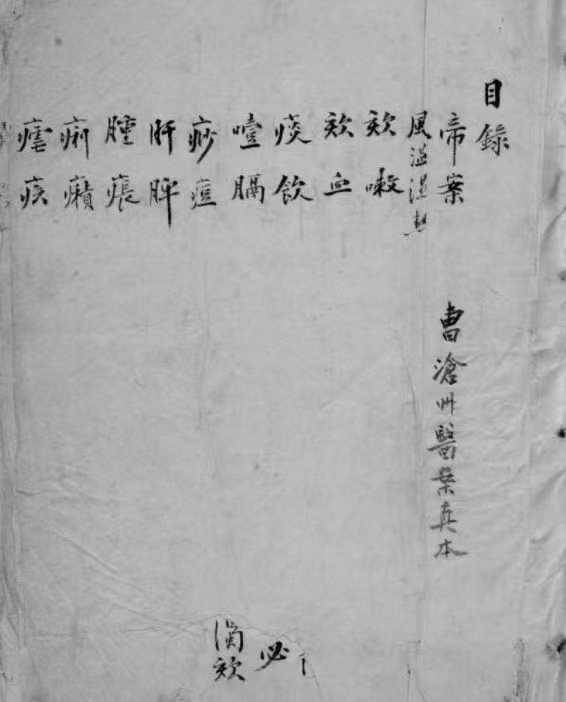 目錄
帝案
曹滄州醫案真本
風温湿熱
欬嗽
欬血
痰飲
噎膈
痧痘
肝脾
腫痮
痢癩
瘧疾
必
欬